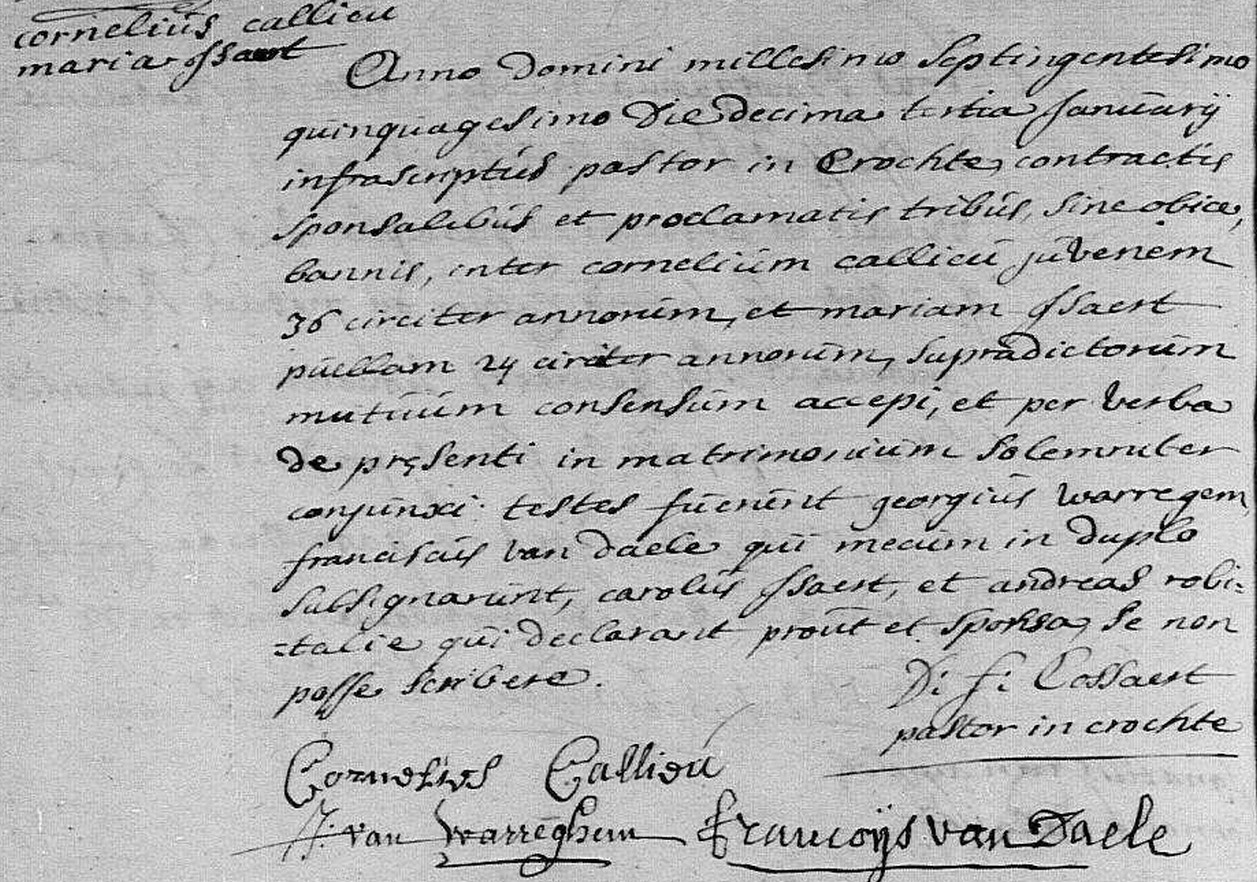 cornelius callieu
maria issaert
Anno Domini millesimo Septingentesimo
quinquagesimo Die decima tertia Januarij
infrascriptus pastor in Crochte, contractis
sponsalibus et proclamatis tribus, sine obice,
bannis, inter cornelium callieu juvenem
36 circiter annorum, et mariam issaert
puellam 24 circiter annorum, supradictorum
mutuum consensum accepi, et per verba
de presenti in matrimonium solemniter
conjunxi. testes fuerunt georgius warregem
franciscus van daele qui mecum in duplo
subsignarunt, carolus issaert, et andreas robi=
=talie qui declarant prout et sponsa, se non
posse scribere.
pastor in crochte
Cornelies Callieu
van warreghem Francoijs van Daele